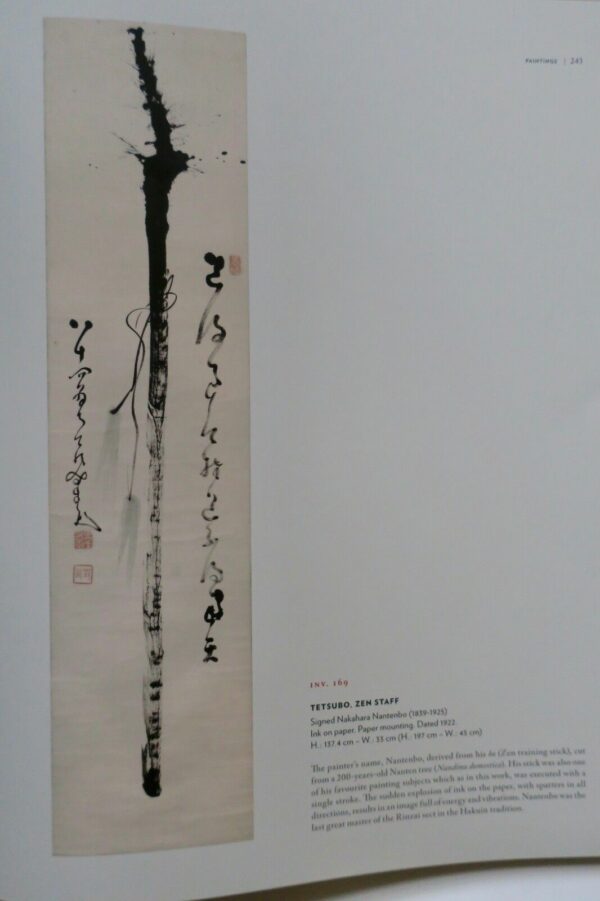 PAINTINGS | 243
八十四翁
INV. 169
TETSUBO, ZEN STAFF
Signed Nakahara Nantenbo (1839-1925)
Ink on paper. Paper mounting. Dated 1922.
H.: 137.4 cm – W.: 33 cm (H.: 197 cm – W.: 45 cm)
The painter's name, Nantenbo, derived from his bo (Zen training stick), cut
from a 200-years-old Nanten tree (Nandina domestica). His stick was also one
of his favourite painting subjects which as in this work, was executed with a
single stroke. The sudden explosion of ink on the paper, with spatters in all
directions, results in an image full of energy and vibrations. Nantenbo was the
last great master of the Rinzai sect in the Hakuin tradition.